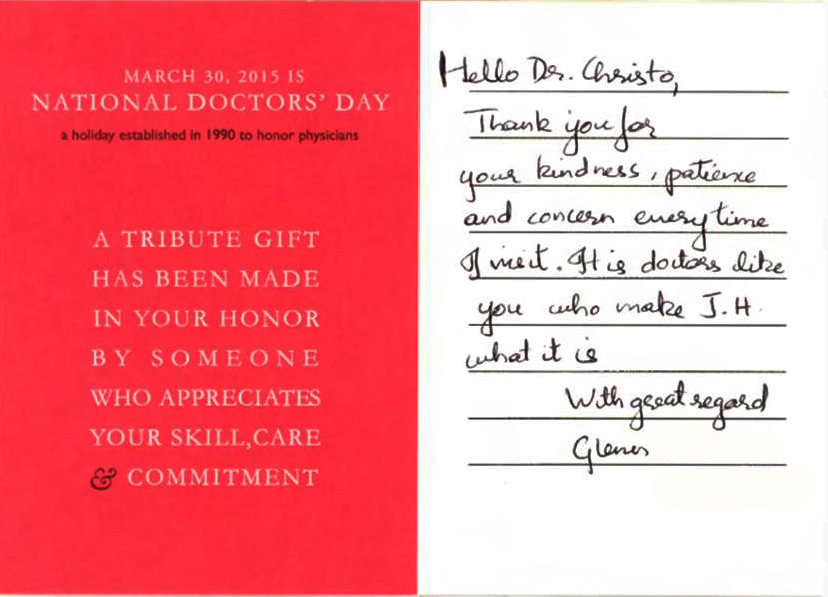 MARCH 30, 2015 IS
NATIONAL DOCTORS' DAY
a holiday established in 1990 to honor physicians
A TRIBUTE GIFT
HAS BEEN MADE
IN YOUR HONOR
BY SOMEONE
WHO APPRECIATES
YOUR SKILL, CARE
& COMMITMENT
Hello Dr. Christo,
Thank you for
your kindness, patience
and concern everytime
I visit. It is doctors like
you who make J.H.
what it is
With great regard